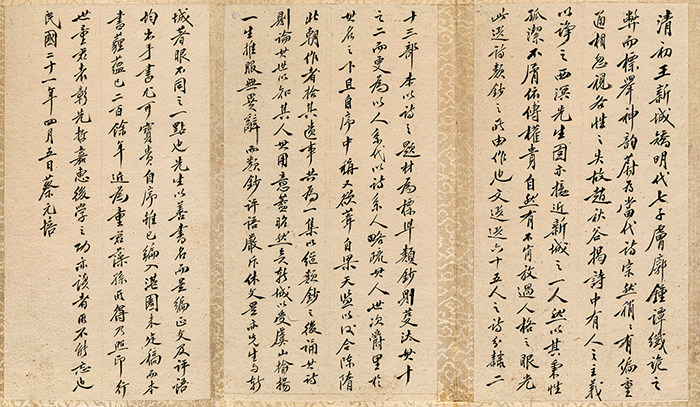 清初王新城矯明代七子膚廓鍾譚纖詭之
弊而標舉神韵蔚為當代詩宗然稍稍有偏重
通相忽視各性之失故趙秋谷揭詩中有人之主義
以諍之西溟先生固亦接近新城之一人然以其秉性
孤潔不屑依傅權貴自然有不肯放過人格之眼光
此選詩類鈔之所由作也文選選六十五人之詩分隸二
十三部本以詩之題材為標準類鈔則蔓汰其十
之二而更為以人系代以詩系人略疏其人世次爵里於
其名之下且自序中稱又欲葺自梁天監以後合陳隋
北朝作者拾其遺事共為一集以繼類鈔之後誦其詩
則論其世以知其人其用意蓋昭然矣新城以受虞山揄揚
一生推服無異辭而類鈔評語嚴斥休文蓋亦先生與新
城著眼不同之一點也先生以善書名而是編正文及評語
均出手書尤可寶貴自序雖已編入湛園未定稿而本
書薶蘊已二百餘年近為童君藻孫所得乃照印行
世童君表彰先哲嘉惠後學之功亦讀者所不能忘也
民國二十一年四月五日蔡元培